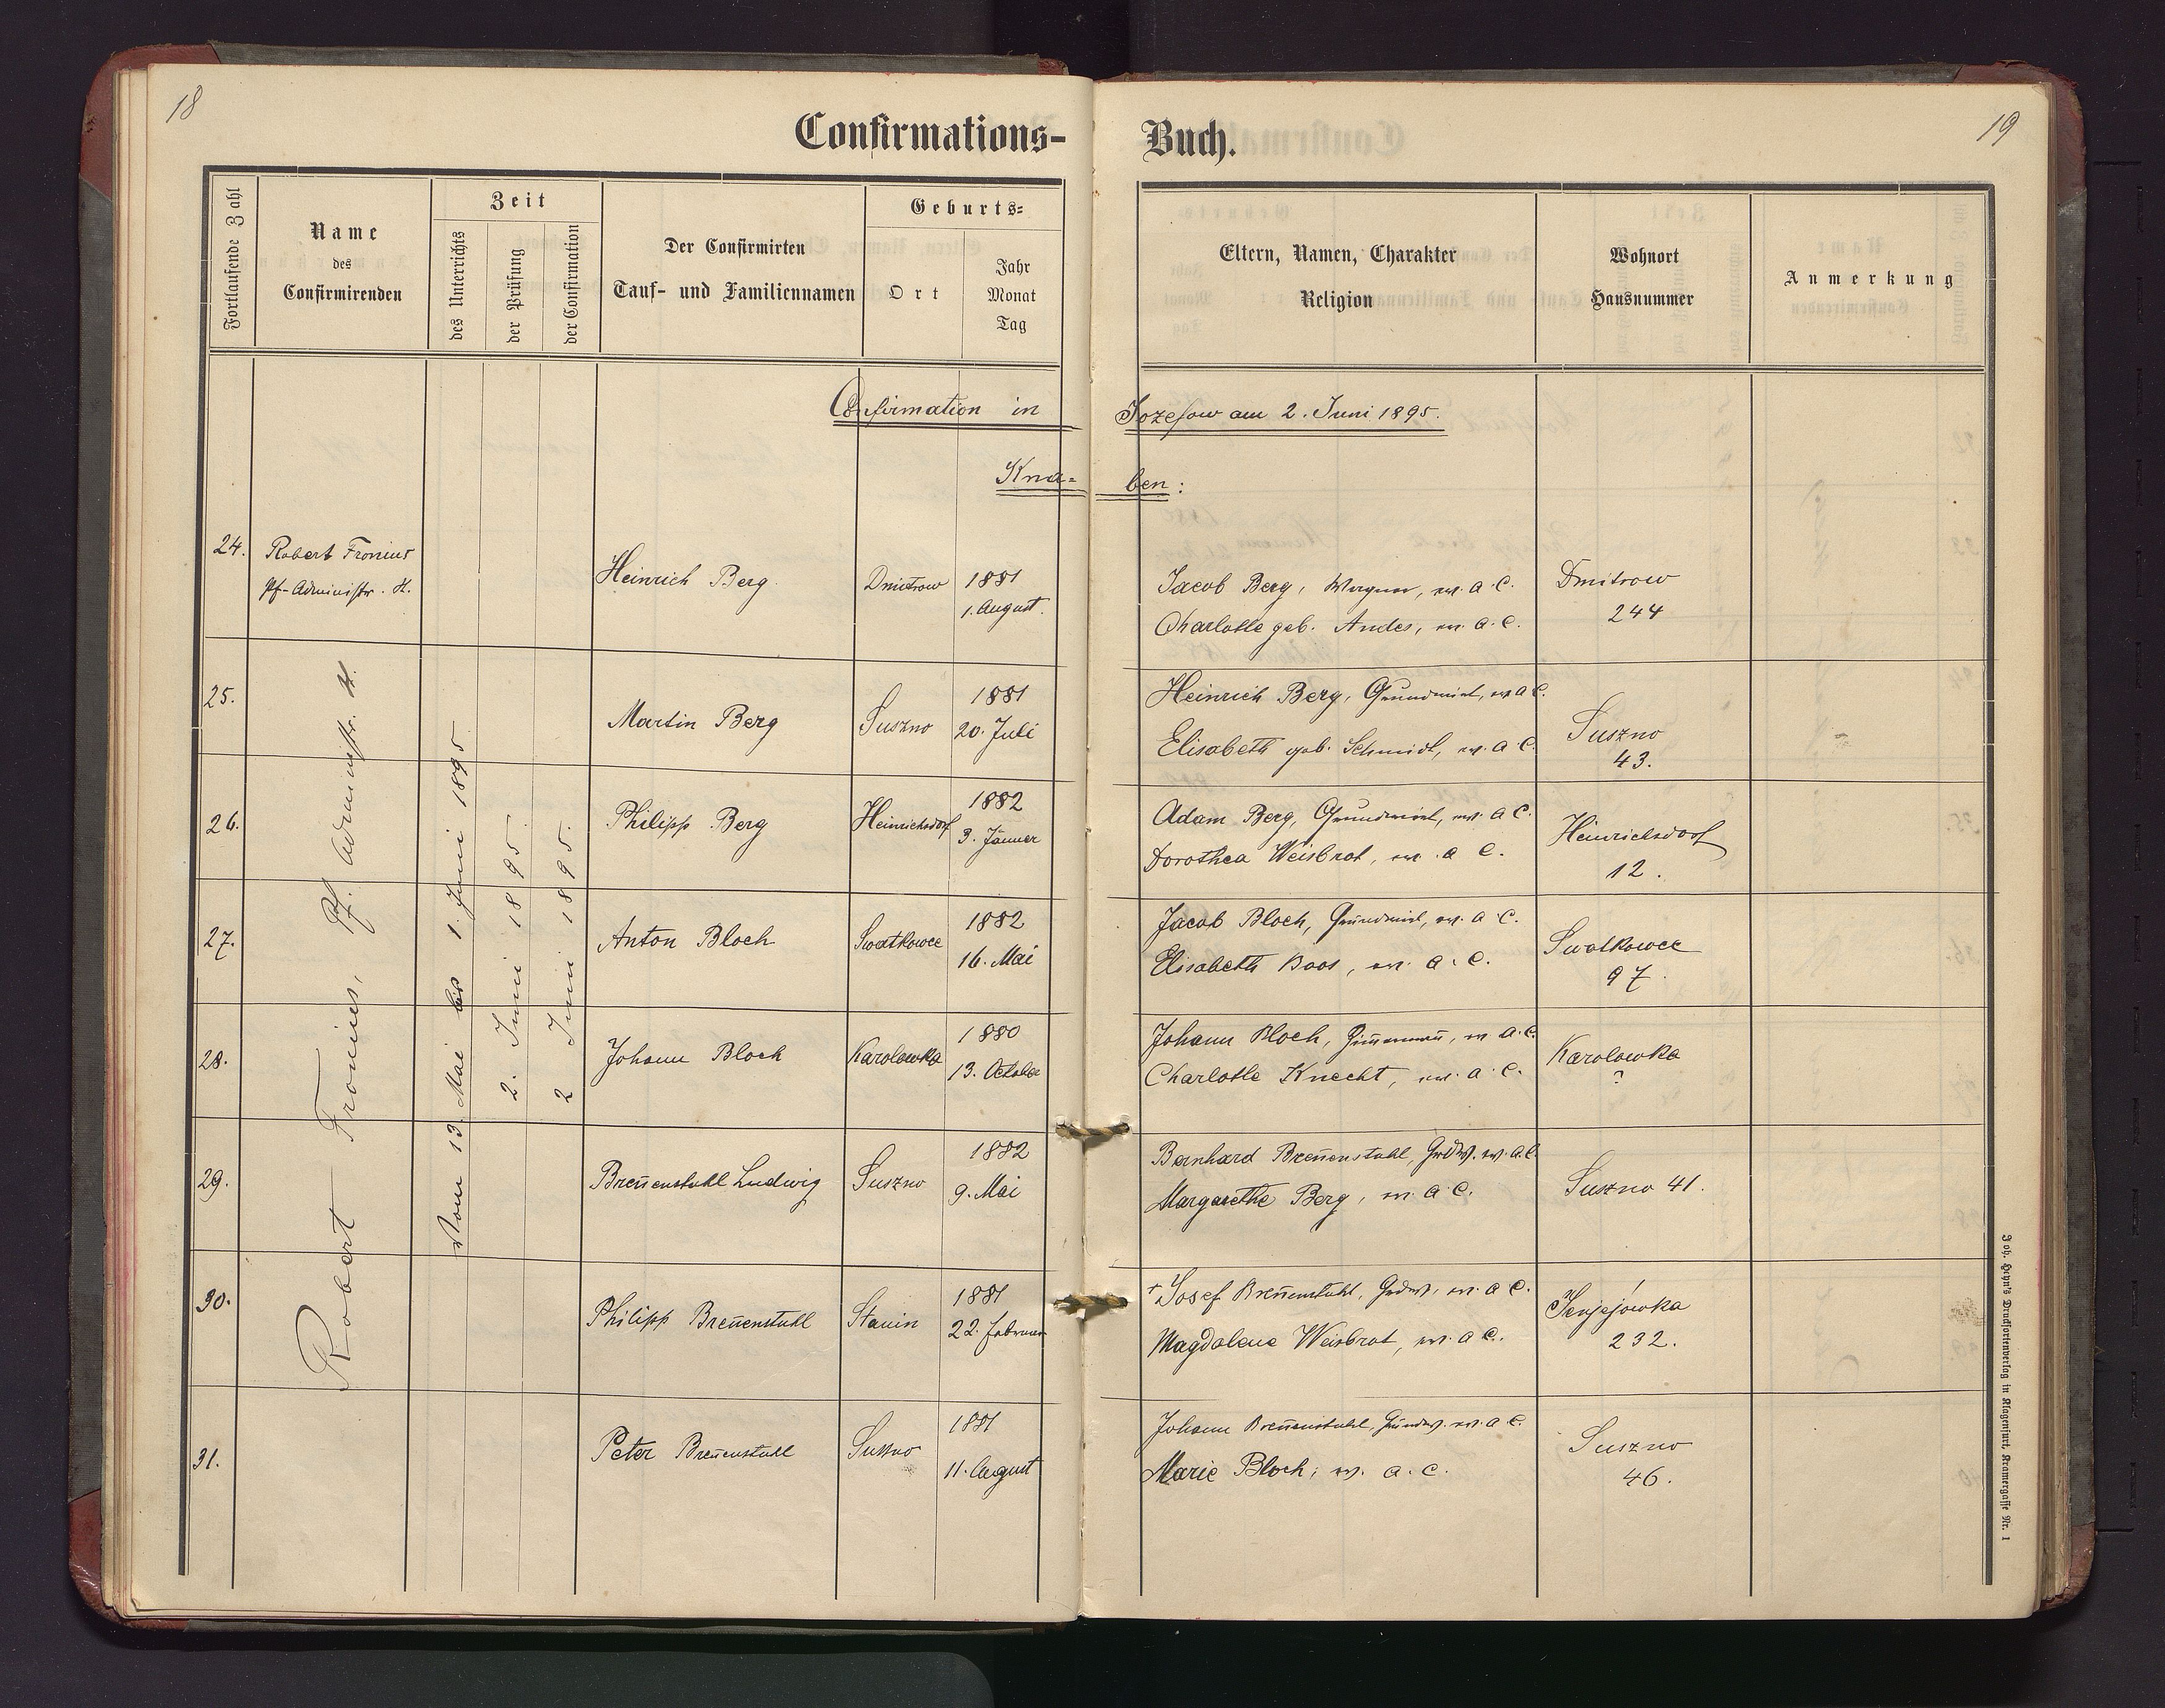 18
19
Confirmations-Buch.
Fortlaufende Zahl
Name
des
Confirmirenden
Zeit
des Unterrichts
der Prüfung
der Confirmation
Der Confirmirten
Tauf- und Familiennamen
Geburts=
Ort
Jahr
Monat
Tag
Eltern, Namen, Charakter
Religion
Wohnort
Hausnummer
Anmerkung
Confirmation in Jozefow am 2. Juni 1895.
Kna=ben:
24.
Robert Fronius
Pf-Administr. H.
Heinrich Berg
Dmitrow
1881
1. August.
Jacob Berg, Wagner, ev. A. C.
Charlotte geb. Andes, ev. A. C.
Dmitrow
244
Robert Fronius, Pf. Administr. H.
Vom 13. Mai bis 1. Juni 1895
2. Juni 1895.
2 Juni 1895.
25.
Martin Berg
Suszno
1881
20. Juli
Heinrich Berg, Grundwirt, ev. A C.
Elisabeth geb. Schmidt, ev. A. C.
Suszno
43.
26.
Philipp Berg
Heinrichsdorf
1882
3. Jänner
Adam Berg, Grundwirt, ev. A C.
Dorothea Weisbrot, ev. A C.
Heinrichsdorf
12.
27.
Anton Bloch
Swatkowce
1882
16. Mai
Jacob Bloch, Grundwirt, ev. A. C.
Elisabeth Boos, ev. A. C.
Swatkowce
97.
28.
Johann Bloch
Karolowka
1880
13. October
Johann Bloch, Zim̄erman̄, ev A. C.
Charlotte Knecht, ev. A. C.
Karolowka
?
29.
Bren̄enstuhl Ludwig
Suszno
1882
9. Mai
Bernhard Bren̄enstuhl, Grdw. ev. A. C.
Margarethe Berg, ev. A C.
Suszno 41.
30.
Philipp Bren̄enstuhl
Stanin
1881
22. Februar
+ Josef Bren̄enstuhl, Grdw, ev. A C.
Magdalene Weisbrot, ev. A C.
232.
31.
Peter Bren̄enstuhl
Suszno
1881
11. August
Johann Bren̄enstuhl, Grundw. ev. A C.
Marie Bloch, ev. A. C.
Suszno
46.
Joh. Heyn's Drucksortenverlag in Klagenfurt, Kramergasse Nr. 1